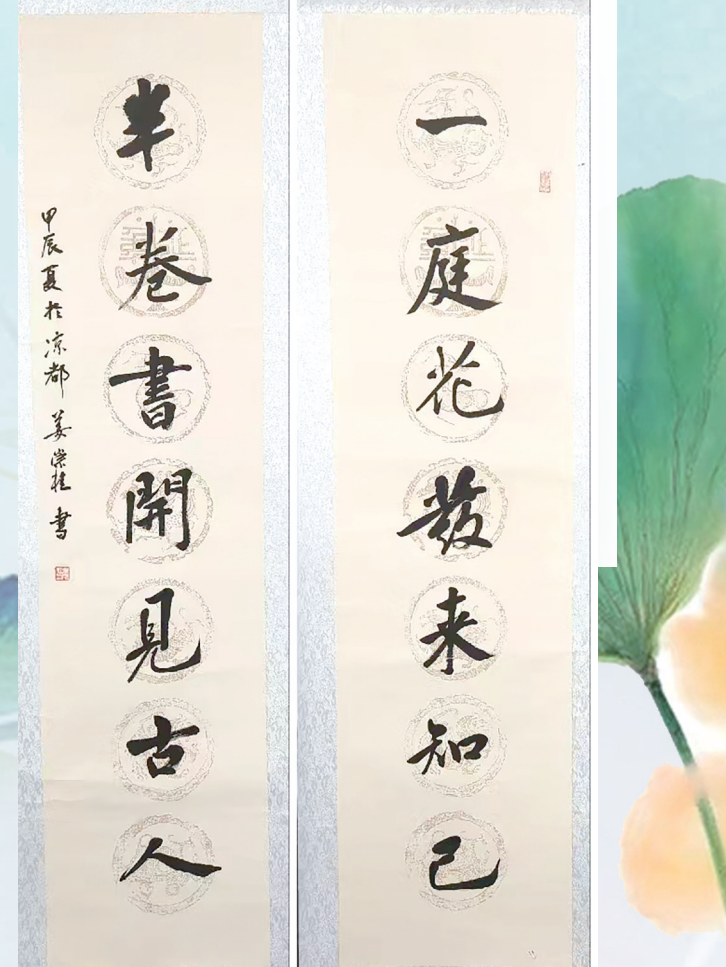 一庭花發来知己
半卷書開見古人
甲辰夏於凉都 姜崇桂書